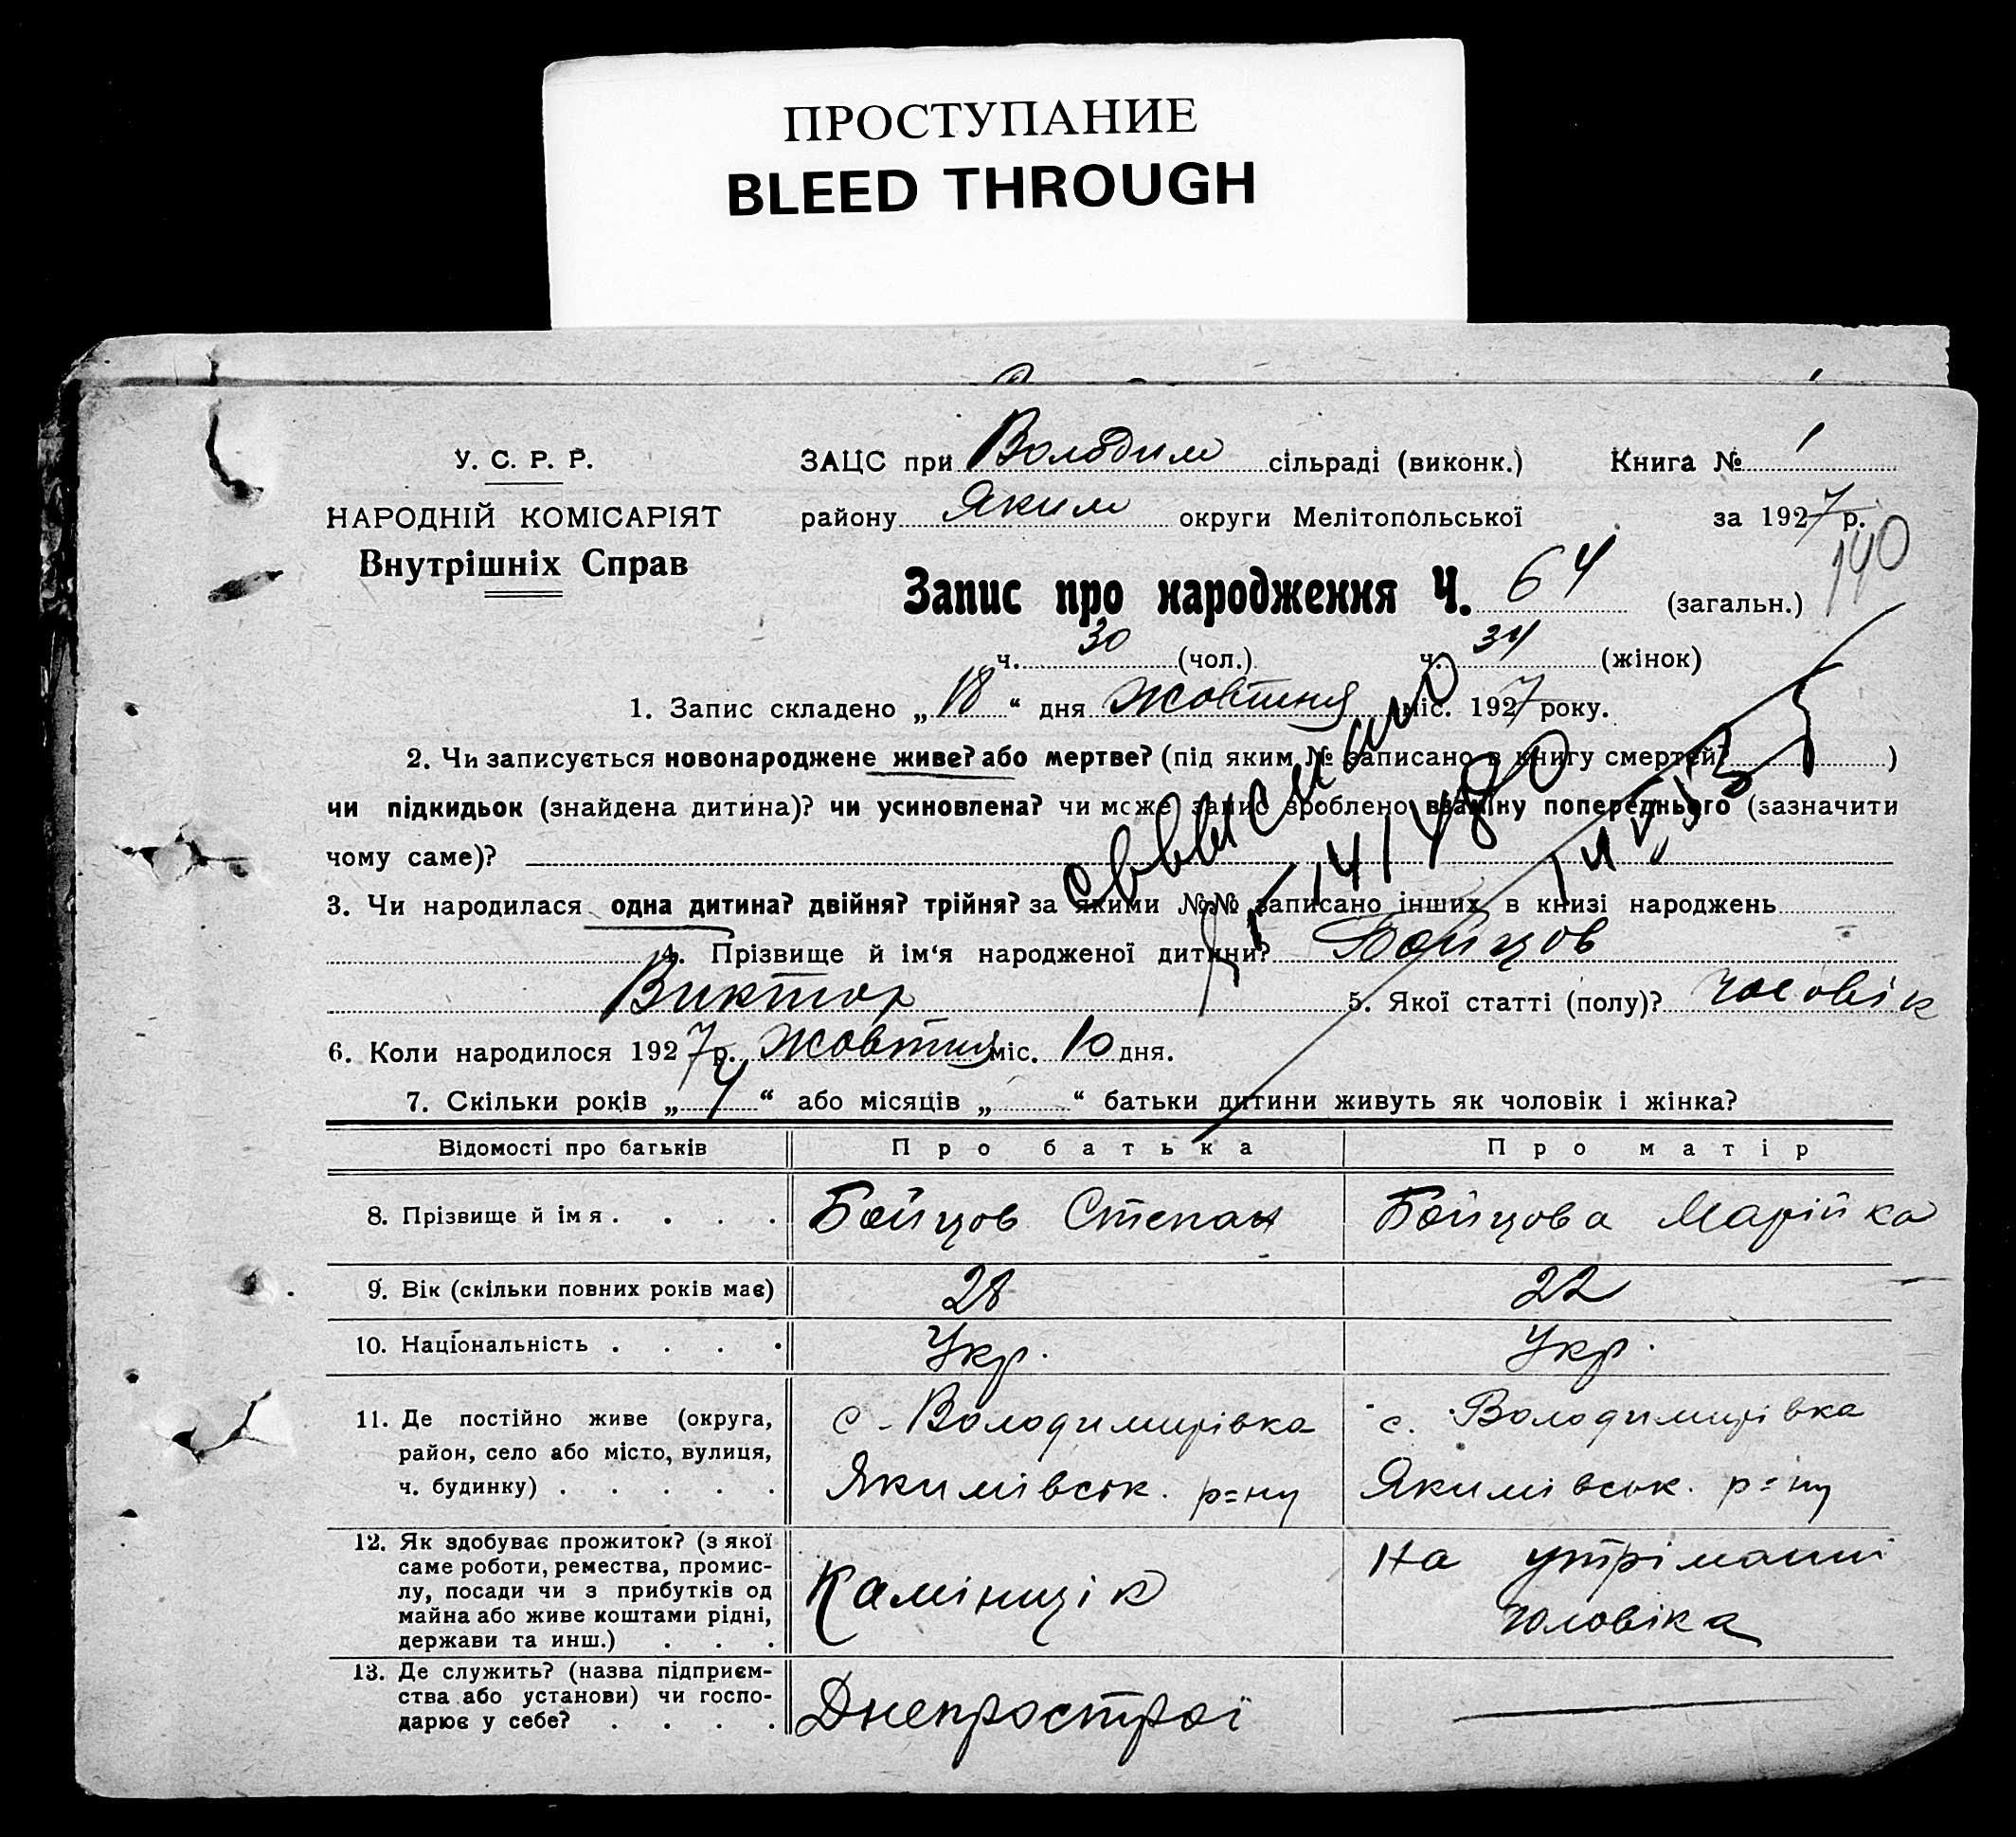 ПРОСТУПАНИЕ
BLEED THROUGH
У. С. Р. Р.
НАРОДНІЙ КОМІСАРІЯТ
Внутрішніх Справ
ЗАЦС при Володим сільраді (виконк.) Книга № 1
району Яким округи Мелітопольської за 1927 р.
190
Запис про народження Ч. 64 (загальн.)
ч. 30 (чол.) ч. 34 (жінок)
1. Запис складено „18“ дня Жовтня міс. 1927 року.
2. Чи записується новонароджене живе? або мертве? (під яким № записано в книгу смертей? )
чи підкидьок (знайдена дитина)? чи усиновлена? чи може запис зроблено взаміну попереднього (зазначити
чому саме)?
3. Чи народилася одна дитина? двійня? трійня? за якими №№ записано інших в книзі народжень
4. Прізвище й ім‘я народженої дитини? Бойцов
Виктор 5. Якої статті (полу)? чоловік
6. Коли народилося 1927 р. Жовтня міс. 10 дня.
7. Скільки років „4“ або місяців „ “ батьки дитини живуть як чоловік і жінка?
Відомості про батьків Про батька Про матір
8. Прізвище й ім я . . . . Бойцов Степан Бойцова Марійка
9. Вік (скільки повних років має) 28 22
10. Національність . . . . Укр. Укр.
11. Де постійно живе (округа, с. Володимирівка с. Володимирівка
район, село або місто, вулиця,
ч. будинку) . . . . . Якимівськ. р=ну Якимівськ. р=ну
12. Як здобуває прожиток? (з якої
саме роботи, ремества, промис-
лу, посади чи з прибутків од
майна або живе коштами рідні,
держави та инш.) . . . Камінщік На утріманні
чоловіка
13. Де служить? (назва підприєм-
ства або установи) чи госпо-
дарює у себе? . . . . Днепрострої